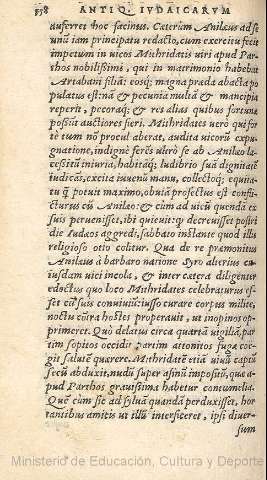 858 ANTIQ. IVDAICARVM
auferret hoc facinus. Cæterùm Anilæus ad se
unũ iam principatu redacto, cum exercitu fecit
impetum in uicos Mithridatis uiri apud Par-
thos nobilissimi, qui in matrimonio habebat
Artabani filiã: eosq; magna præda abacta po
pulatus est: nã & pecuniã multã & mancipia
reperit, pecoraq; & res alias quibus fortunæ
possiũt auctiores fieri. Mithridates uerò qui for
tè tum nõ procul aberat, audita uicorũ expu-
gnatione, indignè ferẽs ultrò se ab Anilæo la-
cessitũ iniuria, habitaq; ludibrio suã dignitatẽ
iudicãs, excita iuuenũ manu, collectoq; equita-
tu q̃ potuit maximo, obuiã profectus est confli-
cturus cũ Anilæo: & cùm ad uicũ quendã ex
suis peruenisset, ibi quieuit: q; decreuisset postri
die Iudæos aggredi, sabbato instante quod illis
religioso otio colitur. Qua de re præmonitus
Anilæus à barbaro natione Syro alterius cu
iusdam uici incola, & inter cætera diligenter
edoctus quo loco Mithridates celebraturus es-
set cũ suis conuiuiũ: iusso curare corpus milite,
noctu cũtra hostes properauit, ut inopinos op-
primeret. Quò delatus circa quartã uigiliã, par
tim sopitos occidit partim attonitos fuga coe-
git salutẽ quærere. Mithridatẽ etiã uiuũ captũ
secũ abduxit, nudũ super asinũ impositũ, quæ a-
pud Parthos grauissima habetur contumelia.
Quẽ cùm sic ad syluã quandã perduxisset, hor-
tantibus amicis ut illũ interficeret, ipsi diuer-
sum
Ministerio de Educación, Cultura y Deporte